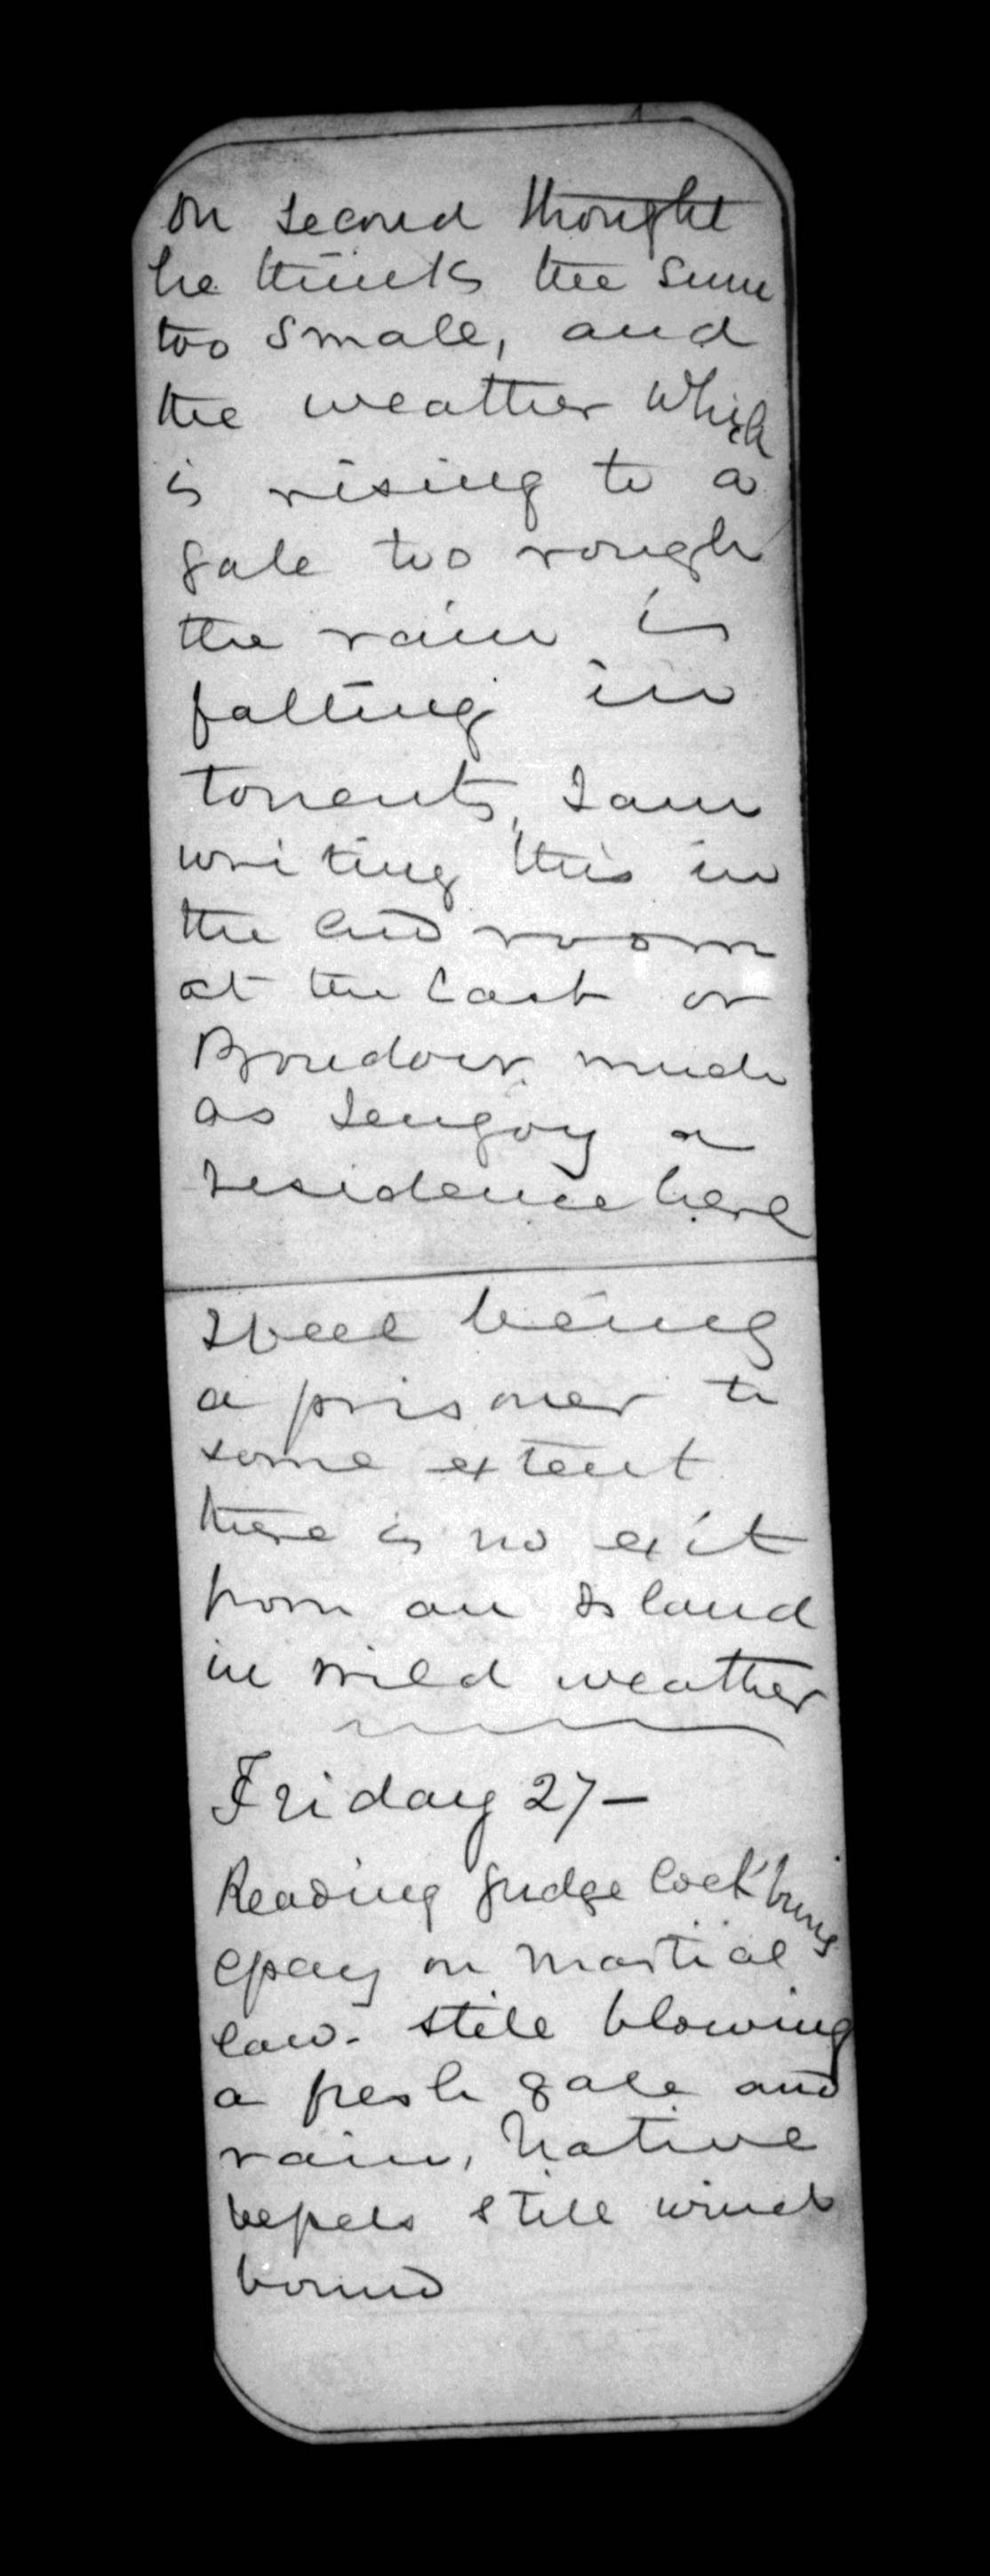 On second thought
he thinks the sum
too small, and
the weather which
is rising to a
gale too rough
the rain is
falling in
torrents, I am
writing this in
the end room
at the East or
Boudoir much
as I enjoy a
residence here
I feel being
a prisoner to
some extent
there is no exit
from an Island
in wild weather
Friday 27 —
Reading Judge Cockburns
essay on Martial
law. still blowing
a fresh gale and
rain, Native
vessels still wind
bound